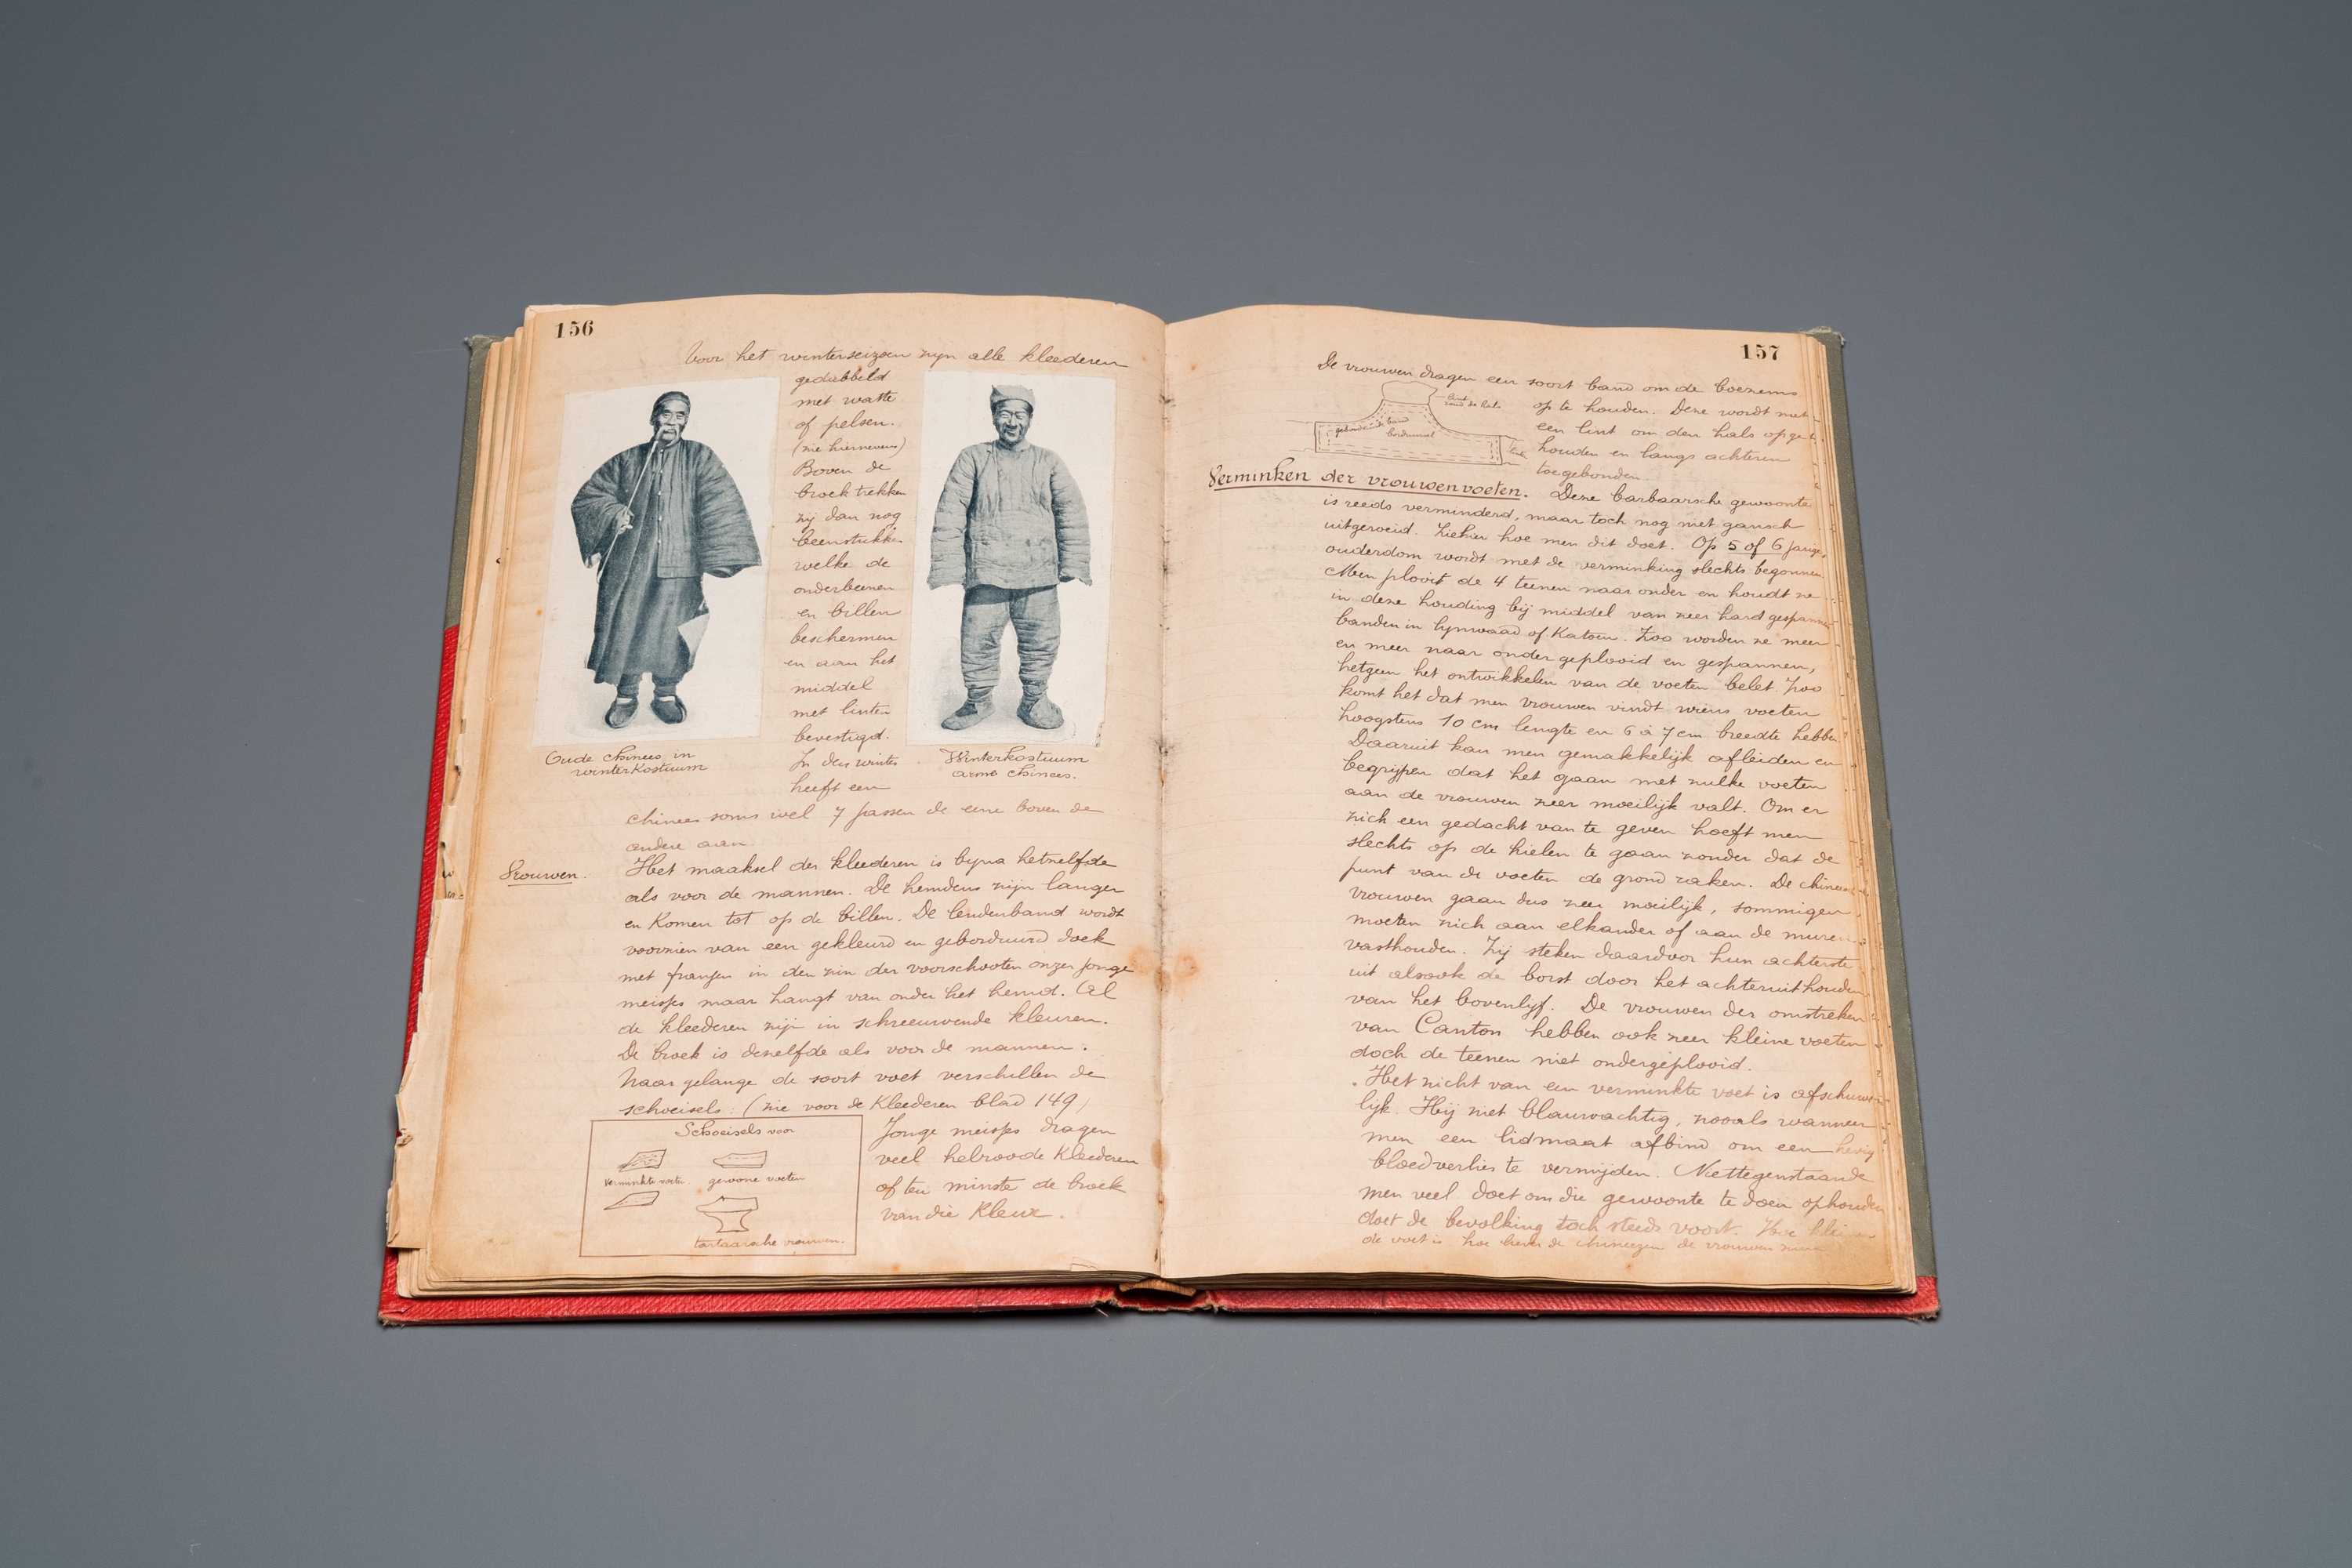 156
Voor het winterseizoen zijn alle kleederen
gedubbeld
met watte
of pelsen.
(zie hiernevens)
Boven de
broek trekken
zij dan nog
beenstukken
welke de
onderbeenen
en billen
beschermen
en aan het
middel
met linten
bevestigd.
In den winter
heeft een
chinees soms wel 7 jassen de eene boven de
andere aan.
Oude chinees in
winterkostuum
Winterkostuum
arme chinees.
Vrouwen.
Het maaksel der kleederen is byna hetzelfde
als voor de mannen. De hemdens zijn langer
en komen tot op de billen. De lendenband wordt
voorzien van een gekleurd en geborduurd doek
met franjen in den zin der voorschooten onzer jonge
meisjes maar hangt van onder het hemd. Al
de kleederen zijn in schreeuwende kleuren.
De broek is dezelfde als voor de mannen.
Naar gelange de soort voet verschillen de
schoeisels. (zie voor de Kleederen blad 149)
Schoeisels voor
verminkte voeten
gewone voeten
tartaarsche vrouwen.
Jonge meisjes dragen
veel helroode Kleederen
of ten minste de broek
van die Kleur.
157
De vrouwen dragen een soort band om de boezems
op te houden. Deze wordt met
een lint om den hals opge
houden en langs achteren
toegebonden
lint
rond de hals
borduursel
Verminken der vrouwenvoeten. Deze barbaarsche gewoonte
is reeds verminderd, maar toch nog niet gansch
uitgeroeid. Ziehier hoe men dit doet. Op 5 of 6 jarige
ouderdom wordt met de verminking slechts begonnen
Men plooit de 4 teenen naar onder en houdt ze
in deze houding bij middel van zeer hard gespannen
banden in lynwaad of Katoen. Zoo worden ze meer
en meer naar onder geplooid en gespannen,
hetgeen het ontwikkelen van de voeten belet. Zoo
komt het dat men vrouwen vindt wiens voeten
hoogstens 10 cm lengte en 6 à 7 cm breedte hebben
Daaruit kan men gemakkelijk afleiden en
begrijpen dat het gaan met zulke voeten
aan de vrouwen zeer moeilijk valt. Om er
zich een gedacht van te geven hoeft men
slechts op de hielen te gaan zonder dat de
punt van de voeten de grond raken. De chineesche
vrouwen gaan dus zeer moeilijk, sommigen
moeten zich aan elkander of aan de muren
vasthouden. Zij steken daardoor hun achterste
uit alsook de borst door het achteruithouden
van het bovenlijf. De vrouwen der omstreken
van Canton hebben ook zeer kleine voeten
doch de teenen niet ondergeplooid.
Het zicht van een verminkte voet is afschuwe
lijk. Hij ziet blauwachtig, zooals wanneer
men een lidmaat afbind om een hevig
bloedverlies te vermijden. Niettegenstaande
men veel doet om die gewoonte te doen ophouden
doet de bevolking toch steeds voort. Hoe kleiner
de voet is hoe liever de chineezen de vrouwen